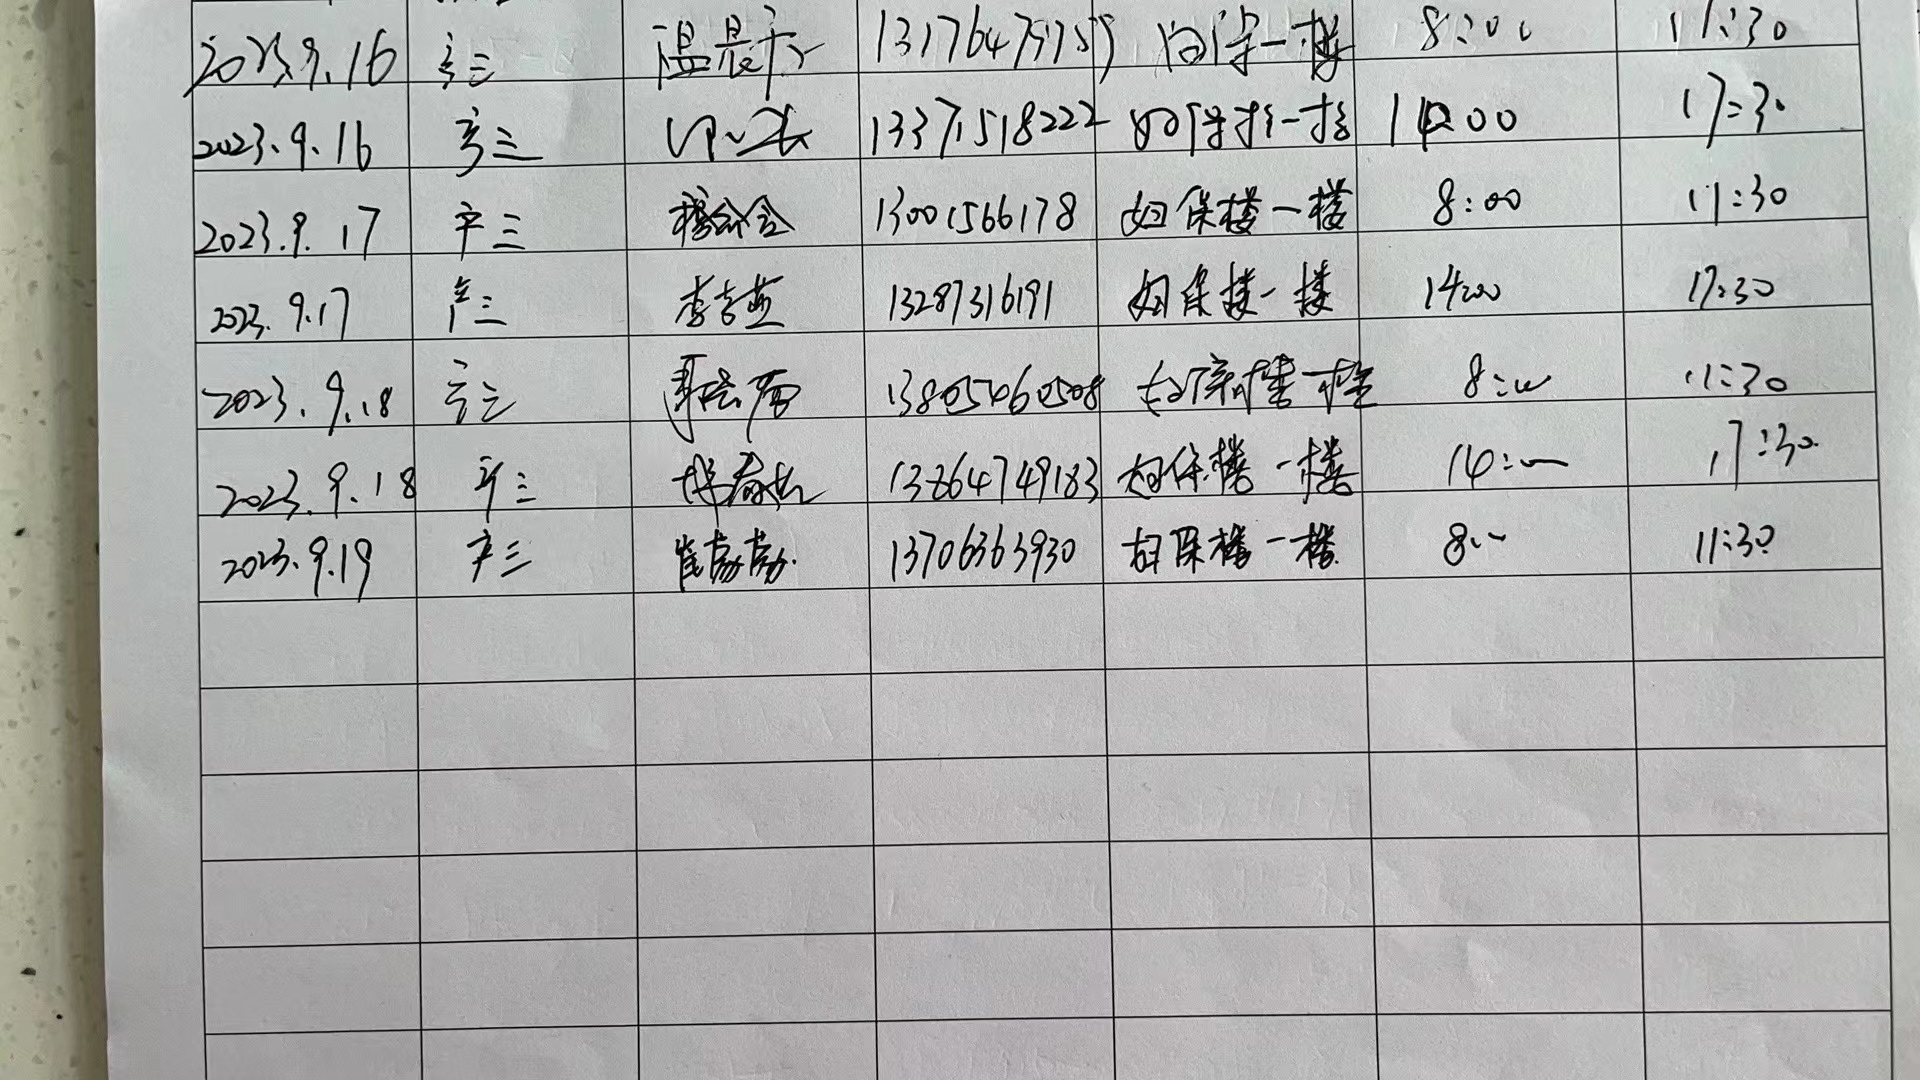 2023.9.16 产三 温晨 妇保一楼 8:00 11:30
2023.9.16 产三 13371518222 妇保楼一楼 14:00 17:30
2023.9.17 产三 13001566178 妇保楼一楼 8:00 11:30
2023.9.17 产三 李吉燕 13287316191 妇保楼一楼 14:00 17:30
2023.9.18 产三 妇保楼一楼 8:00 11:30
2023.9.18 产三 13864749183 妇保楼一楼 14:00 17:30
2023.9.19 产三 崔苗苗 13706363930 妇保楼一楼 8:00 11:30